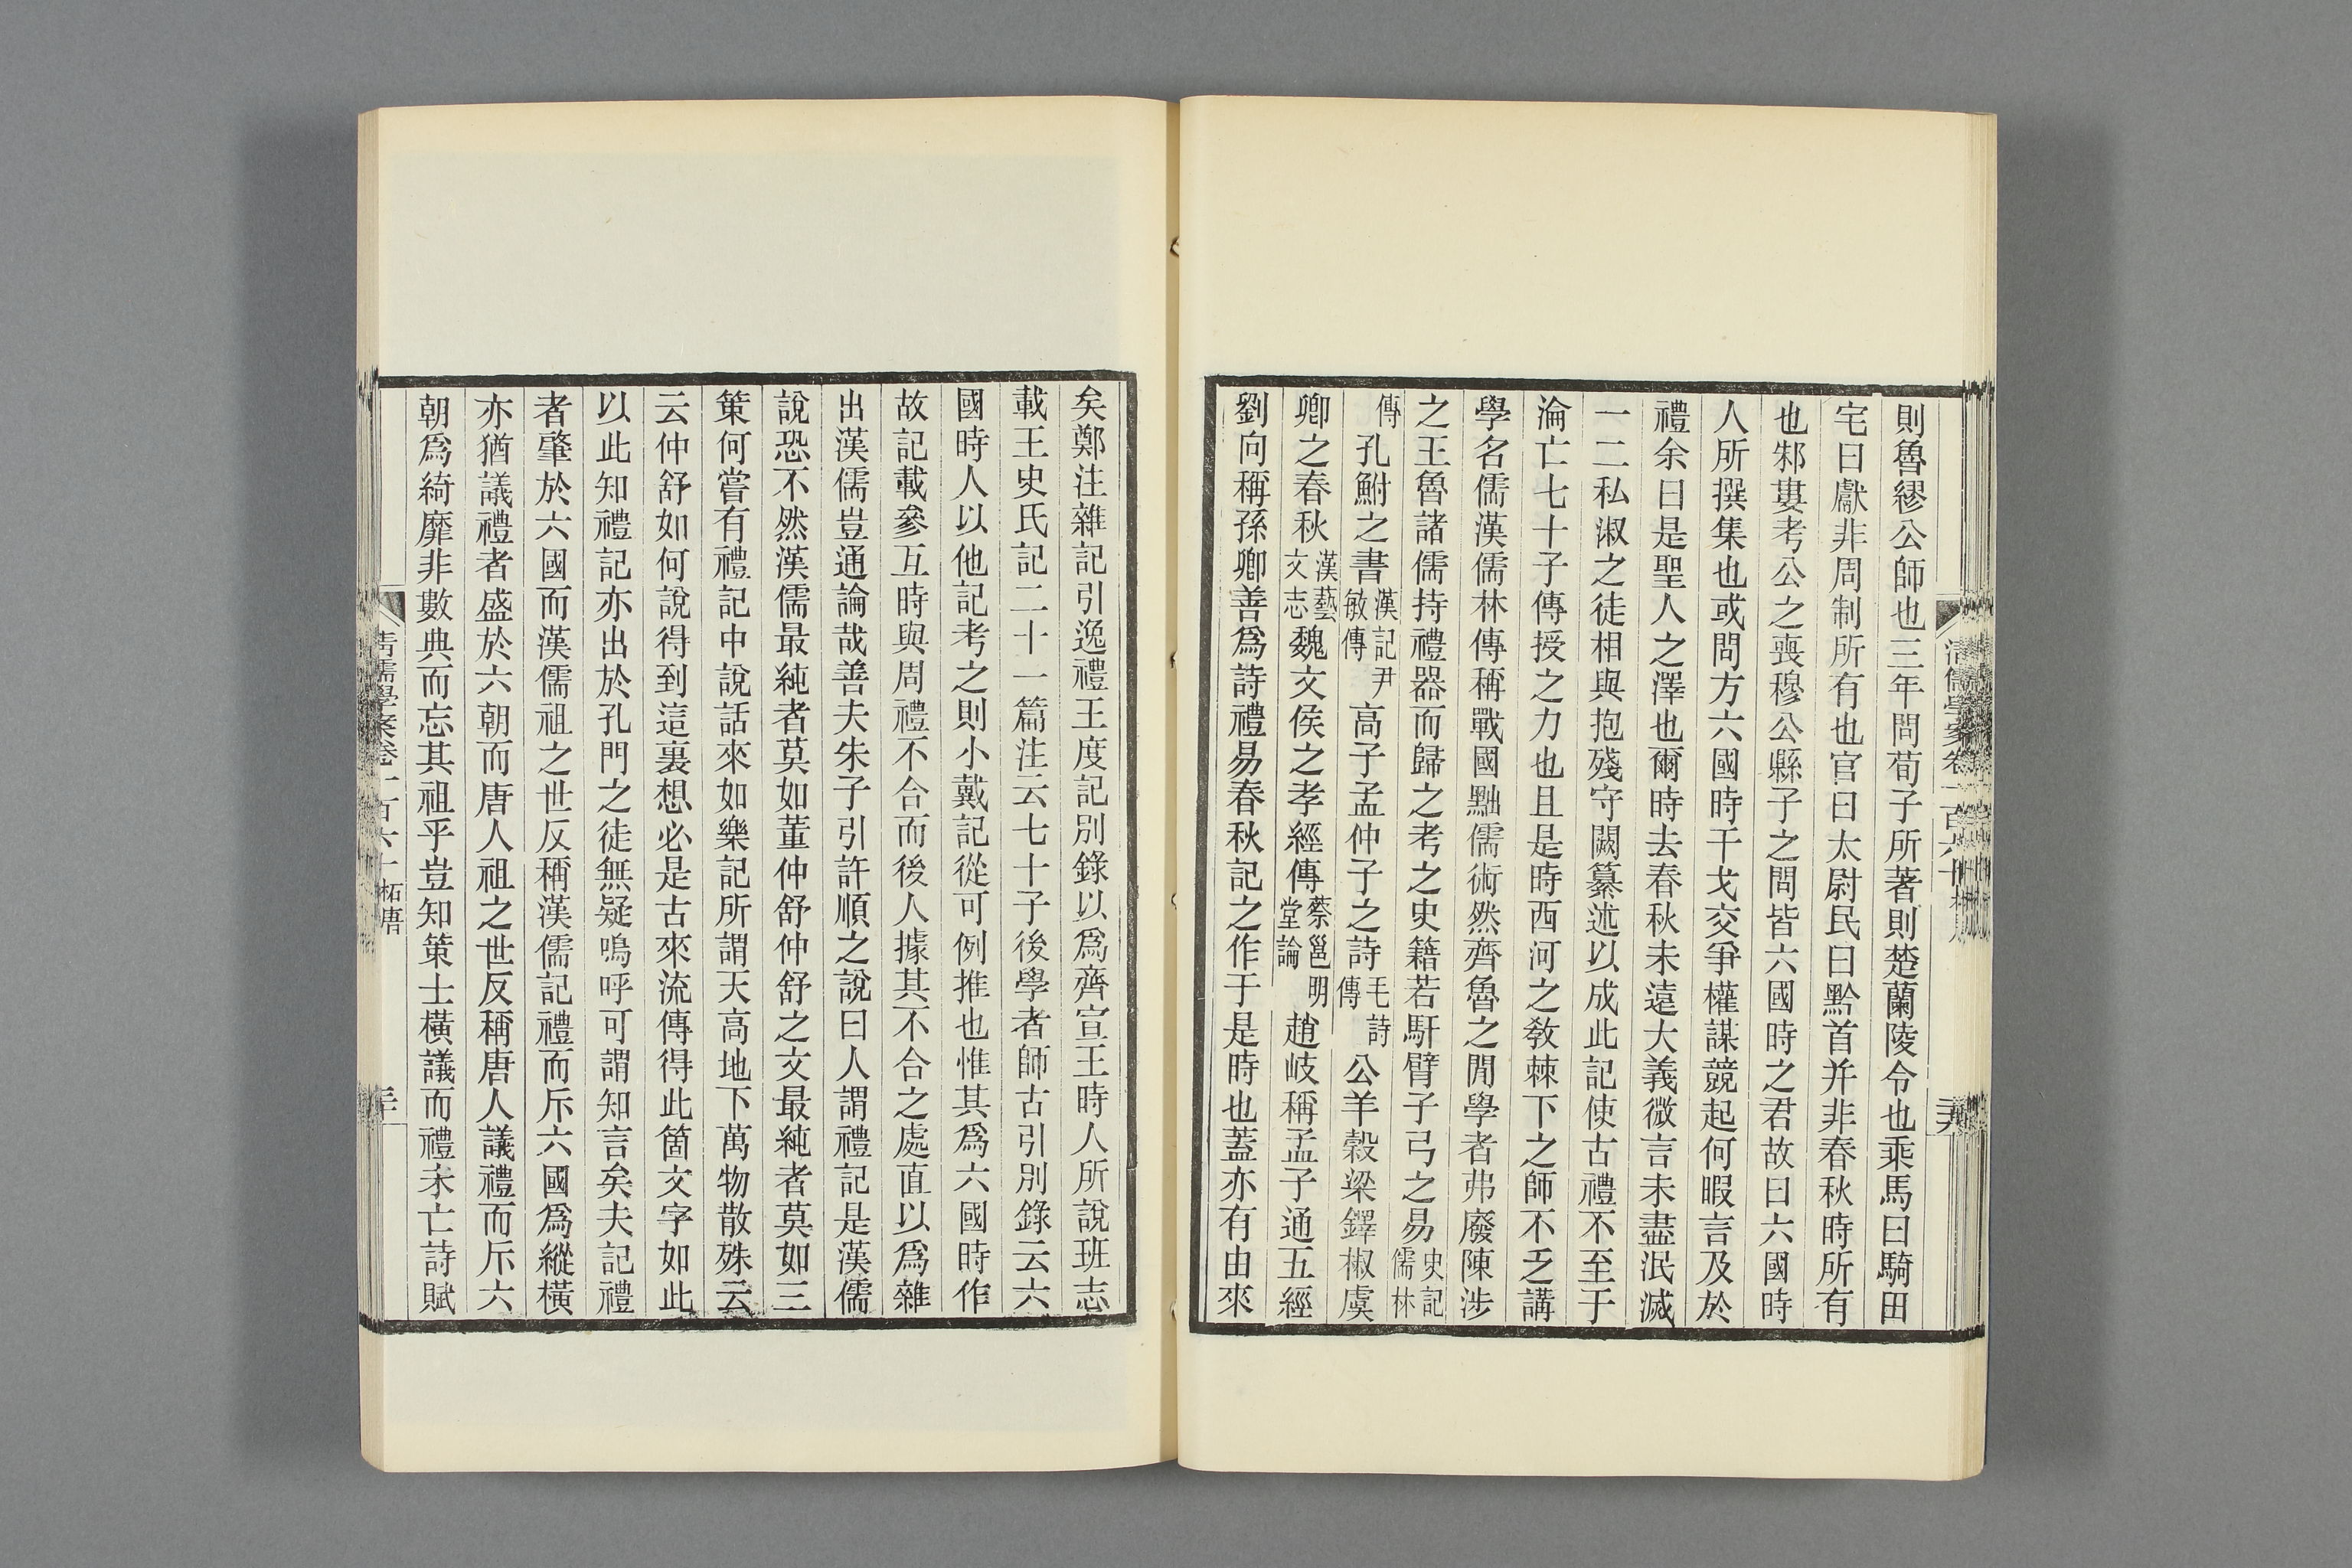 則魯繆公師也三年問荀子所著則楚蘭陵令也乘馬曰騎田
宅曰獻非周制所有也官曰太尉民曰黔首并非春秋時所有
也邾婁考公之喪穆公縣子之問皆六國時之君故曰六國時
人所撰集也或問方六國時干戈交爭權謀競起何暇言及於
禮余曰是聖人之澤也爾時去春秋未遠大義微言未盡泯滅
一二私淑之徒相與抱殘守闕纂述以成此記使古禮不至于
淪亡七十子傳授之力也且是時西河之教棘下之師不乏講
學名儒漢儒林傳稱戰國黜儒術然齊魯之閒學者弗廢陳涉
之王魯諸儒持禮器而歸之考之史籍若馯臂子弓之易史記儒林
傳孔鮒之書漢記尹敏傳高子孟仲子之詩毛詩傳公羊穀梁鐸椒虞
卿之春秋漢藝文志魏文侯之孝經傳蔡邕明堂論趙岐稱孟子通五經
劉向稱孫卿善爲詩禮易春秋記之作于是時也蓋亦有由來
清儒學案卷一百六十
矣鄭注雜記引逸禮王度記別錄以爲齊宣王時人所說班志
載王史氏記二十一篇注云七十子後學者師古引別錄云六
國時人以他記考之則小戴記從可例推也惟其爲六國時作
故記載參互時與周禮不合而後人據其不合之處直以爲雜
出漢儒豈通論哉善夫朱子引許順之說曰人謂禮記是漢儒
說恐不然漢儒最純者莫如董仲舒仲舒之文最純者莫如三
策何嘗有禮記中說話來如樂記所謂天高地下萬物散殊云
云仲舒如何說得到這裏想必是古來流傳得此箇文字如此
以此知禮記亦出於孔門之徒無疑嗚呼可謂知言矣夫記禮
者肇於六國而漢儒祖之世反稱漢儒記禮而斥六國爲縱橫
亦猶議禮者盛於六朝而唐人祖之世反稱唐人議禮而斥六
朝爲綺靡非數典而忘其祖乎豈知策士橫議而禮未亡詩賦
清儒學案卷一百六十 柘唐